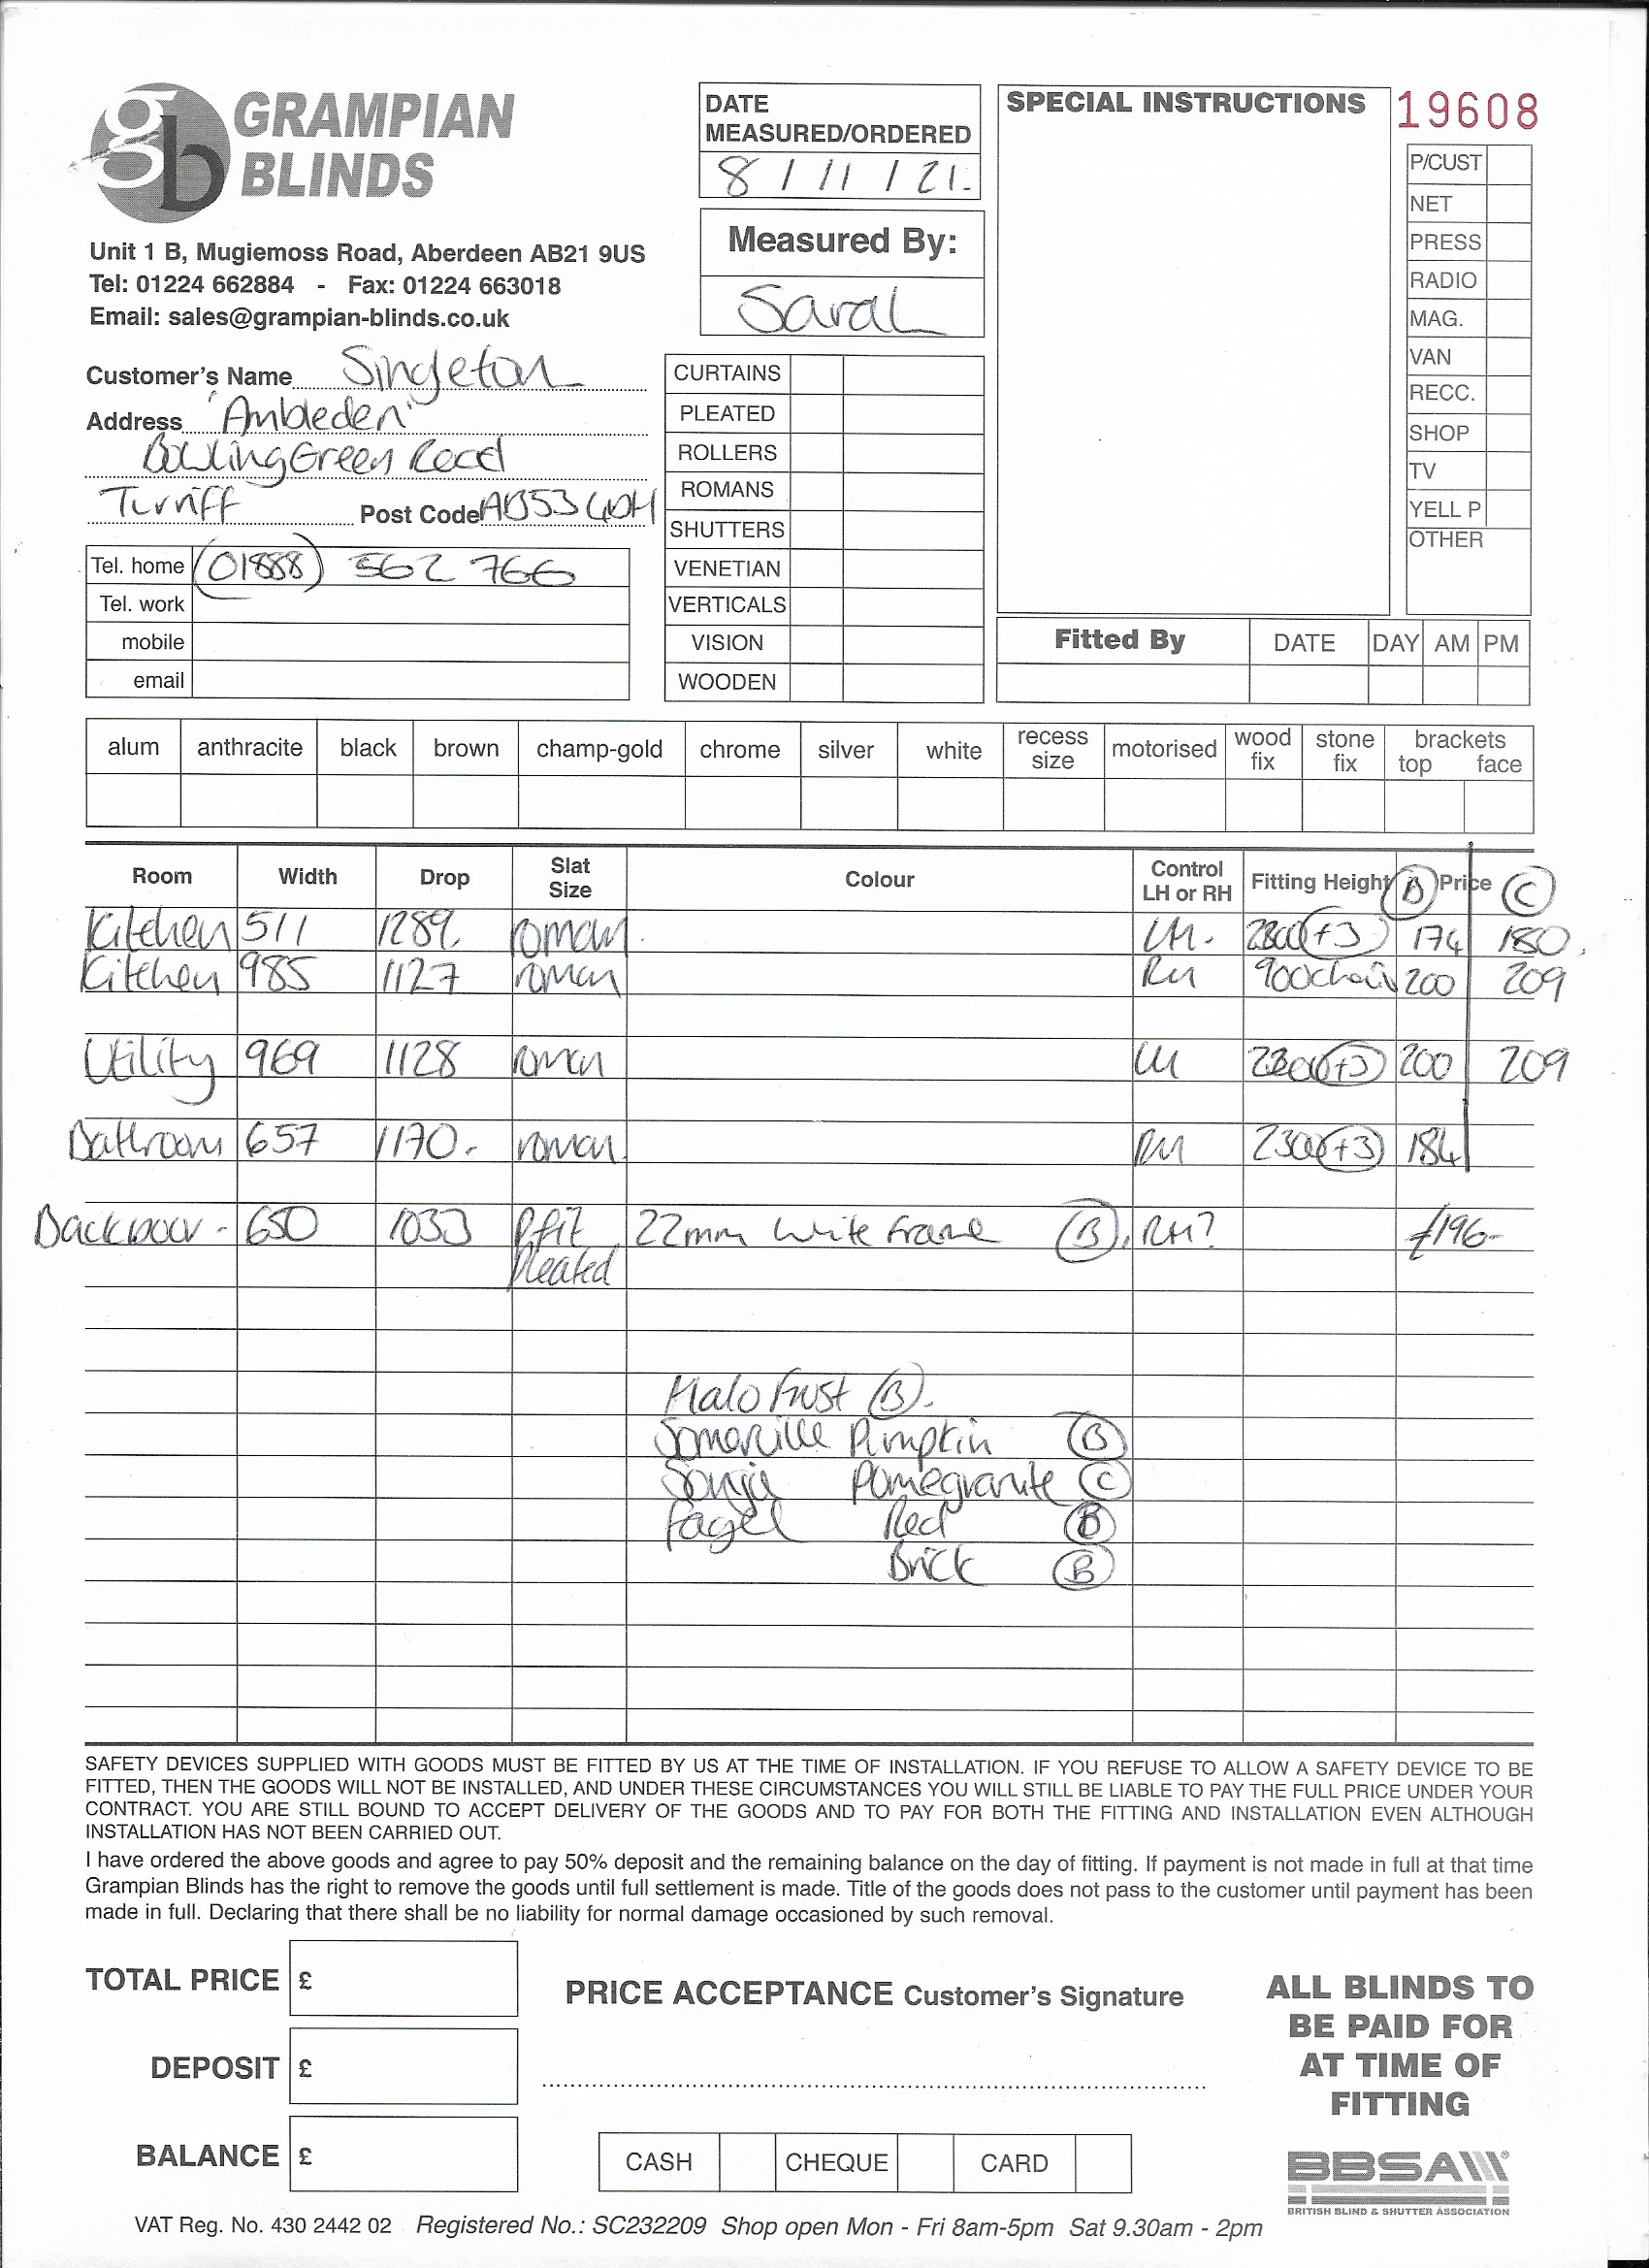 GRAMPIAN
BLINDS
Unit 1 B, Mugiemoss Road, Aberdeen AB21 9US
Tel: 01224 662884 - Fax: 01224 663018
Email: sales@grampian-blinds.co.uk
DATE
MEASURED/ORDERED
8 / 11 / 21.
Measured By:
Sarah
SPECIAL INSTRUCTIONS
19608
P/CUST
NET
PRESS
RADIO
MAG.
VAN
RECC.
SHOP
TV
YELL P
OTHER
Customer's Name Singleton
Address 'Ambleden'
Bowling Green Road
Turriff Post Code AB53 4DH
Tel. home (01888) 562 766
Tel. work
mobile
email
CURTAINS
PLEATED
ROLLERS
ROMANS
SHUTTERS
VENETIAN
VERTICALS
VISION
WOODEN
Fitted By DATE DAY AM PM
alum anthracite black brown champ-gold chrome silver white recess size motorised wood fix stone fix brackets top face
Room Width Drop Slat Size Colour Control LH or RH Fitting Height B Price C
Kitchen 511 1289. roman LH. 2300 +3 174 180.
Kitchen 985 1127 roman RH 900chain 200 209
Utility 969 1128 roman LH 2300 +3 200 209
Bathroom 657 1170- roman RH 2300 +3 184
Backdoor - 650 1033 Pfit 22mm White Frame B. RH? £196-
Pleated
Halo Frost B.
Somerville Pumpkin B
Sonja Pomegranite C
Fagel Red B
Brick B
SAFETY DEVICES SUPPLIED WITH GOODS MUST BE FITTED BY US AT THE TIME OF INSTALLATION. IF YOU REFUSE TO ALLOW A SAFETY DEVICE TO BE
FITTED, THEN THE GOODS WILL NOT BE INSTALLED, AND UNDER THESE CIRCUMSTANCES YOU WILL STILL BE LIABLE TO PAY THE FULL PRICE UNDER YOUR
CONTRACT. YOU ARE STILL BOUND TO ACCEPT DELIVERY OF THE GOODS AND TO PAY FOR BOTH THE FITTING AND INSTALLATION EVEN ALTHOUGH
INSTALLATION HAS NOT BEEN CARRIED OUT.
I have ordered the above goods and agree to pay 50% deposit and the remaining balance on the day of fitting. If payment is not made in full at that time
Grampian Blinds has the right to remove the goods until full settlement is made. Title of the goods does not pass to the customer until payment has been
made in full. Declaring that there shall be no liability for normal damage occasioned by such removal.
TOTAL PRICE £
DEPOSIT £
BALANCE £
PRICE ACCEPTANCE Customer's Signature
CASH CHEQUE CARD
ALL BLINDS TO
BE PAID FOR
AT TIME OF
FITTING
BBSA
BRITISH BLIND & SHUTTER ASSOCIATION
VAT Reg. No. 430 2442 02 Registered No.: SC232209 Shop open Mon - Fri 8am-5pm Sat 9.30am - 2pm